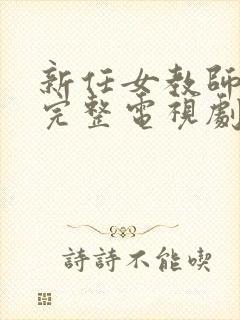 新任女教師
完整電視劇
詩詩不能喫